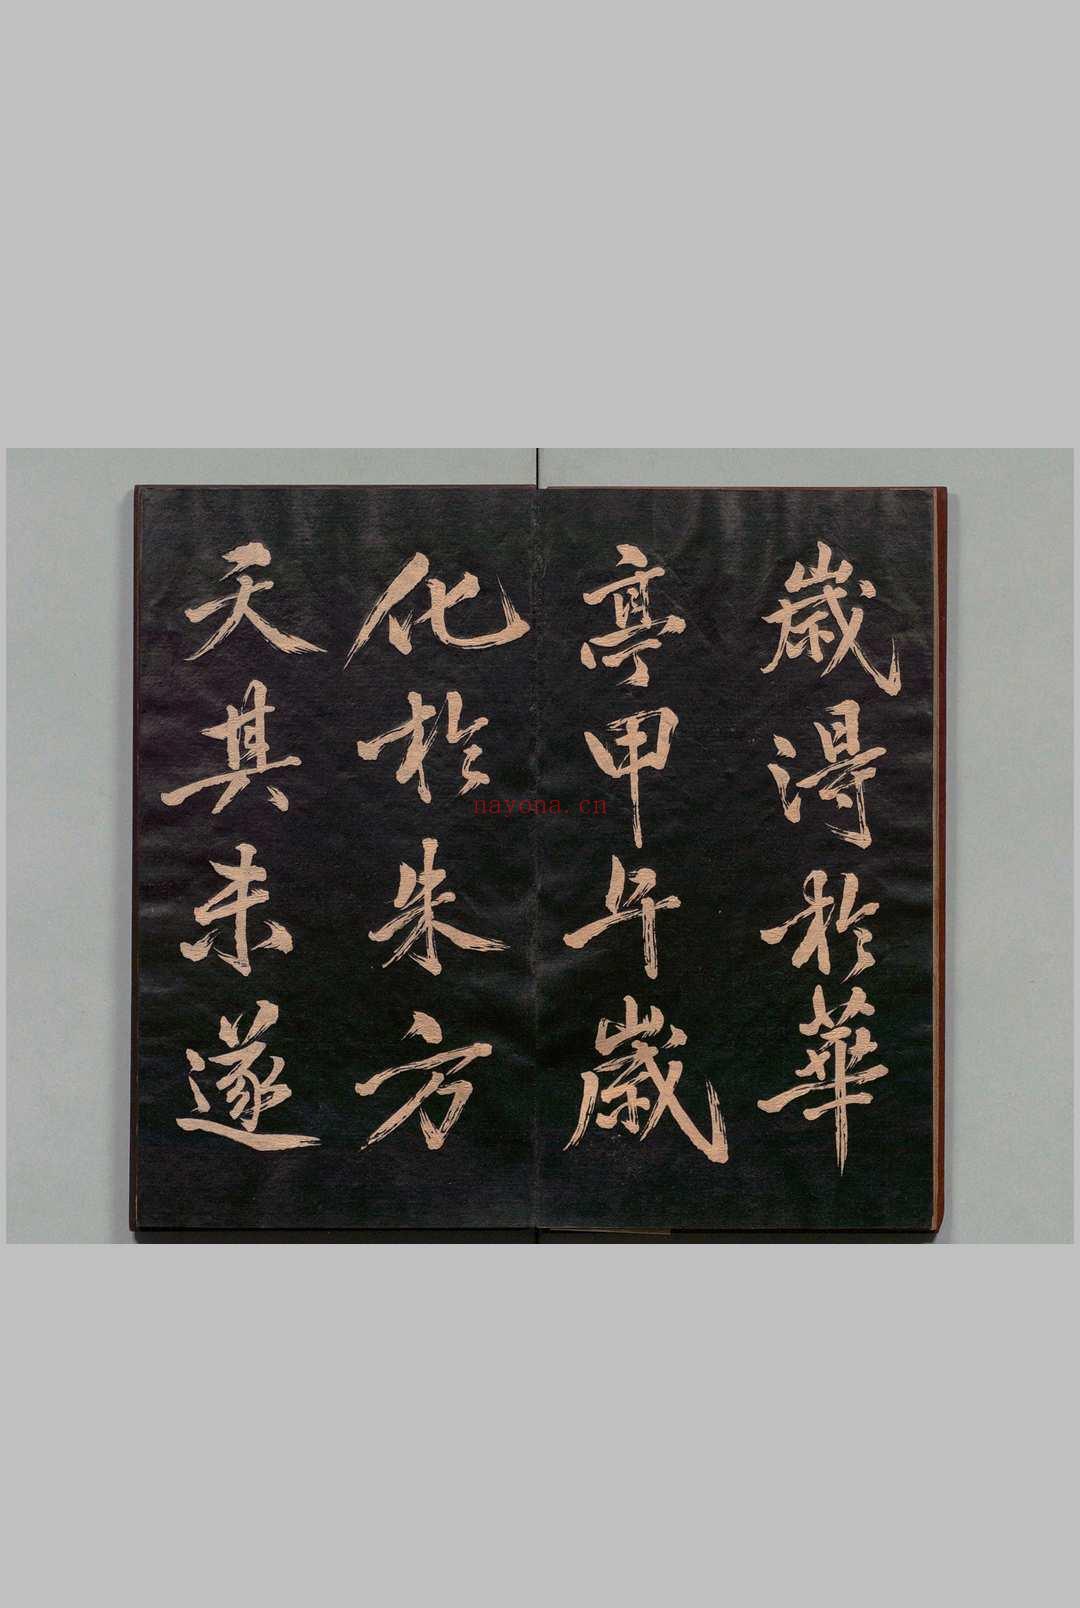 歲得於華
亭甲午歲
化於朱方
天其未遂
nayona.cn